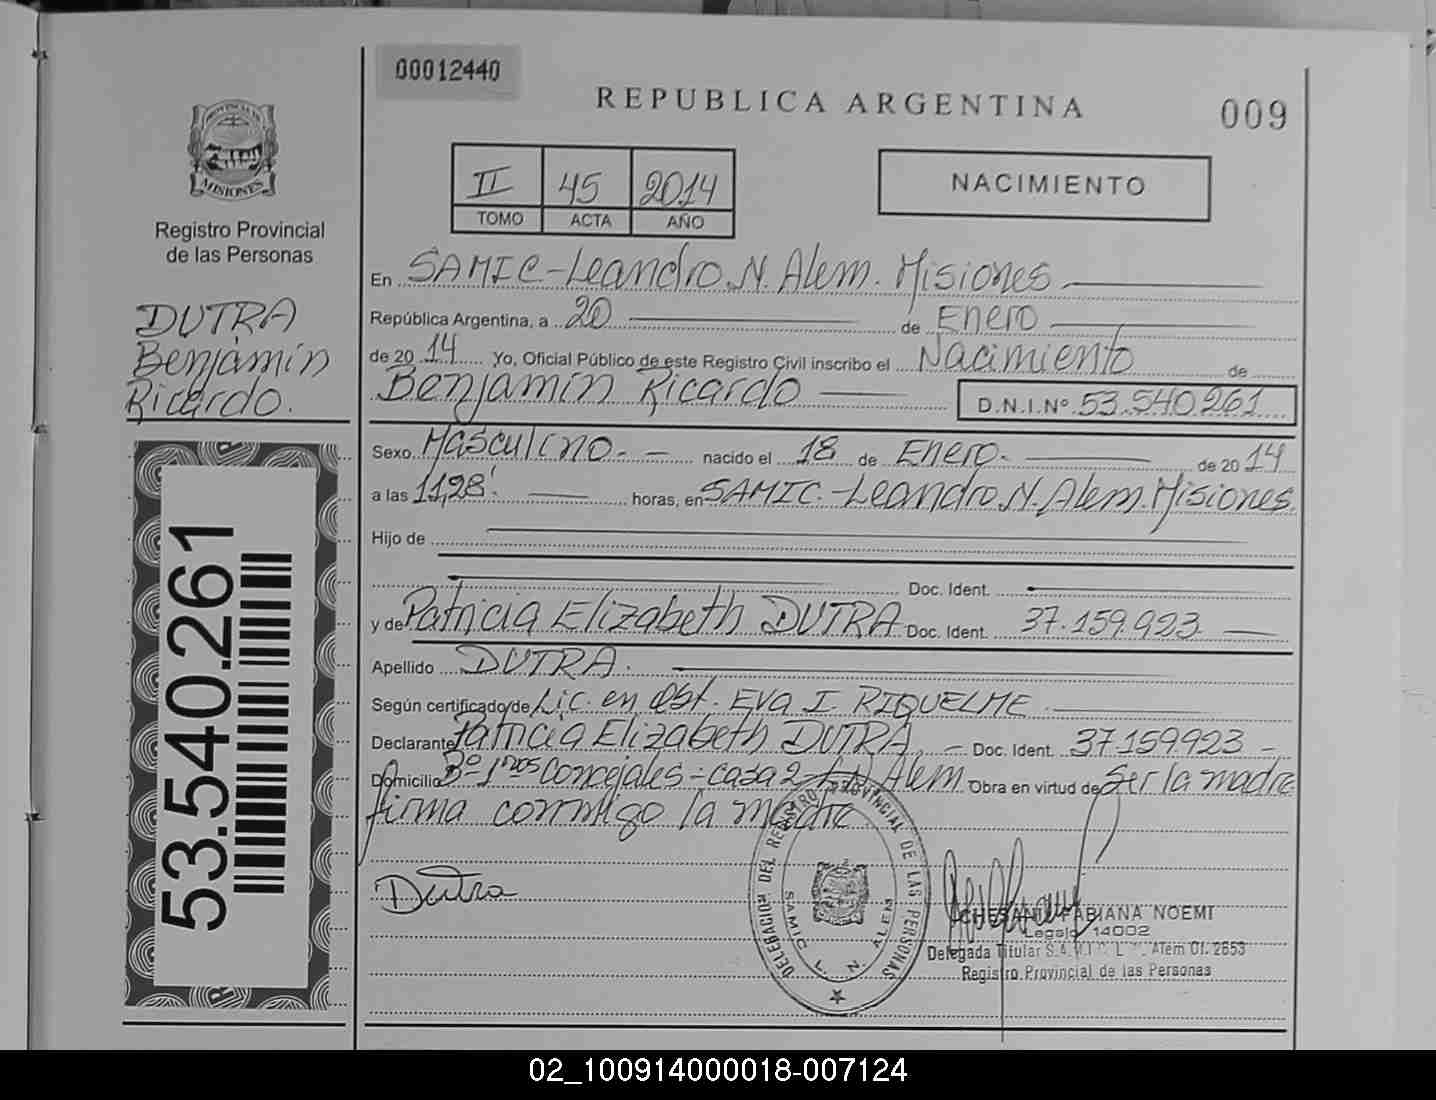 00012440
REPUBLICA ARGENTINA
009
PROVINCIA DE
MISIONES
Registro Provincial
de las Personas
II 45 2014
TOMO ACTA AÑO
NACIMIENTO
DUTRA
Benjamín
Ricardo.
En SAMIC-Leandro. N. Alem. Misiones
República Argentina, a 20 de Enero
de 2014 Yo, Oficial Público de este Registro Civil inscribo el Nacimiento de
Benjamín Ricardo D.N.I.Nº 53.540.261
Sexo Masculino.- nacido el 18 de Enero.- de 2014
a las 11,28'. horas, en SAMIC.-Leandro.N.Alem.Misiones.
Hijo de
Doc. Ident.
y de Patricia Elizabeth DUTRA Doc. Ident. 37.159.923
Apellido DUTRA.
Según certificado de Lic. en Obst. EVA I. RIQUELME
Declarante Patricia Elizabeth DUTRA. - Doc. Ident. 37.159.923 -
Domicilio Bº 1nos Concejales - casa 2 - L.N. Alem. Obra en virtud de Ser la madre
firma conmigo la madre.
Dutra
53.540.261
DELEGACION DEL REGISTRO PROVINCIAL DE LAS PERSONAS
SAMIC L. N. ALEM
FABIANA NOEMI
Legajo 14002
Delegada Titular S.A.M.I.C. L. N. Alem Of. 2653
Registro Provincial de las Personas
02_100914000018-007124